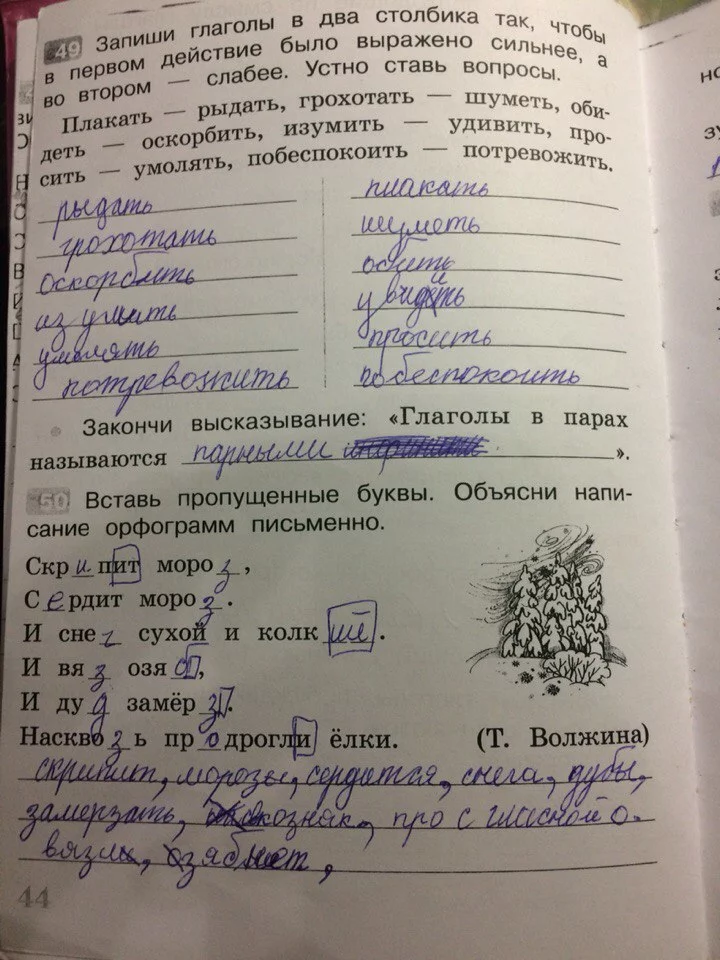 49 Запиши глаголы в два столбика так, чтобы
в первом действие было выражено сильнее, а
во втором — слабее. Устно ставь вопросы.
Плакать — рыдать, грохотать — шуметь, оби-
деть — оскорбить, изумить — удивить, про-
сить — умолять, побеспокоить — потревожить.
рыдать плакать
грохотать шуметь
оскорбить
изумить
умолять просить
потревожить побеспокоить
Закончи высказывание: «Глаголы в парах
называются парными ».
50 Вставь пропущенные буквы. Объясни напи-
сание орфограмм письменно.
Скрипит мороз,
Сердит мороз.
И снег сухой и колк
И вяз озяб,
И ду замёрз.
Насквозь продрогли ёлки. (Т. Волжина)
скрипит, морозы, сердится, снега, дубы,
замерзать, про с гласной о.
44